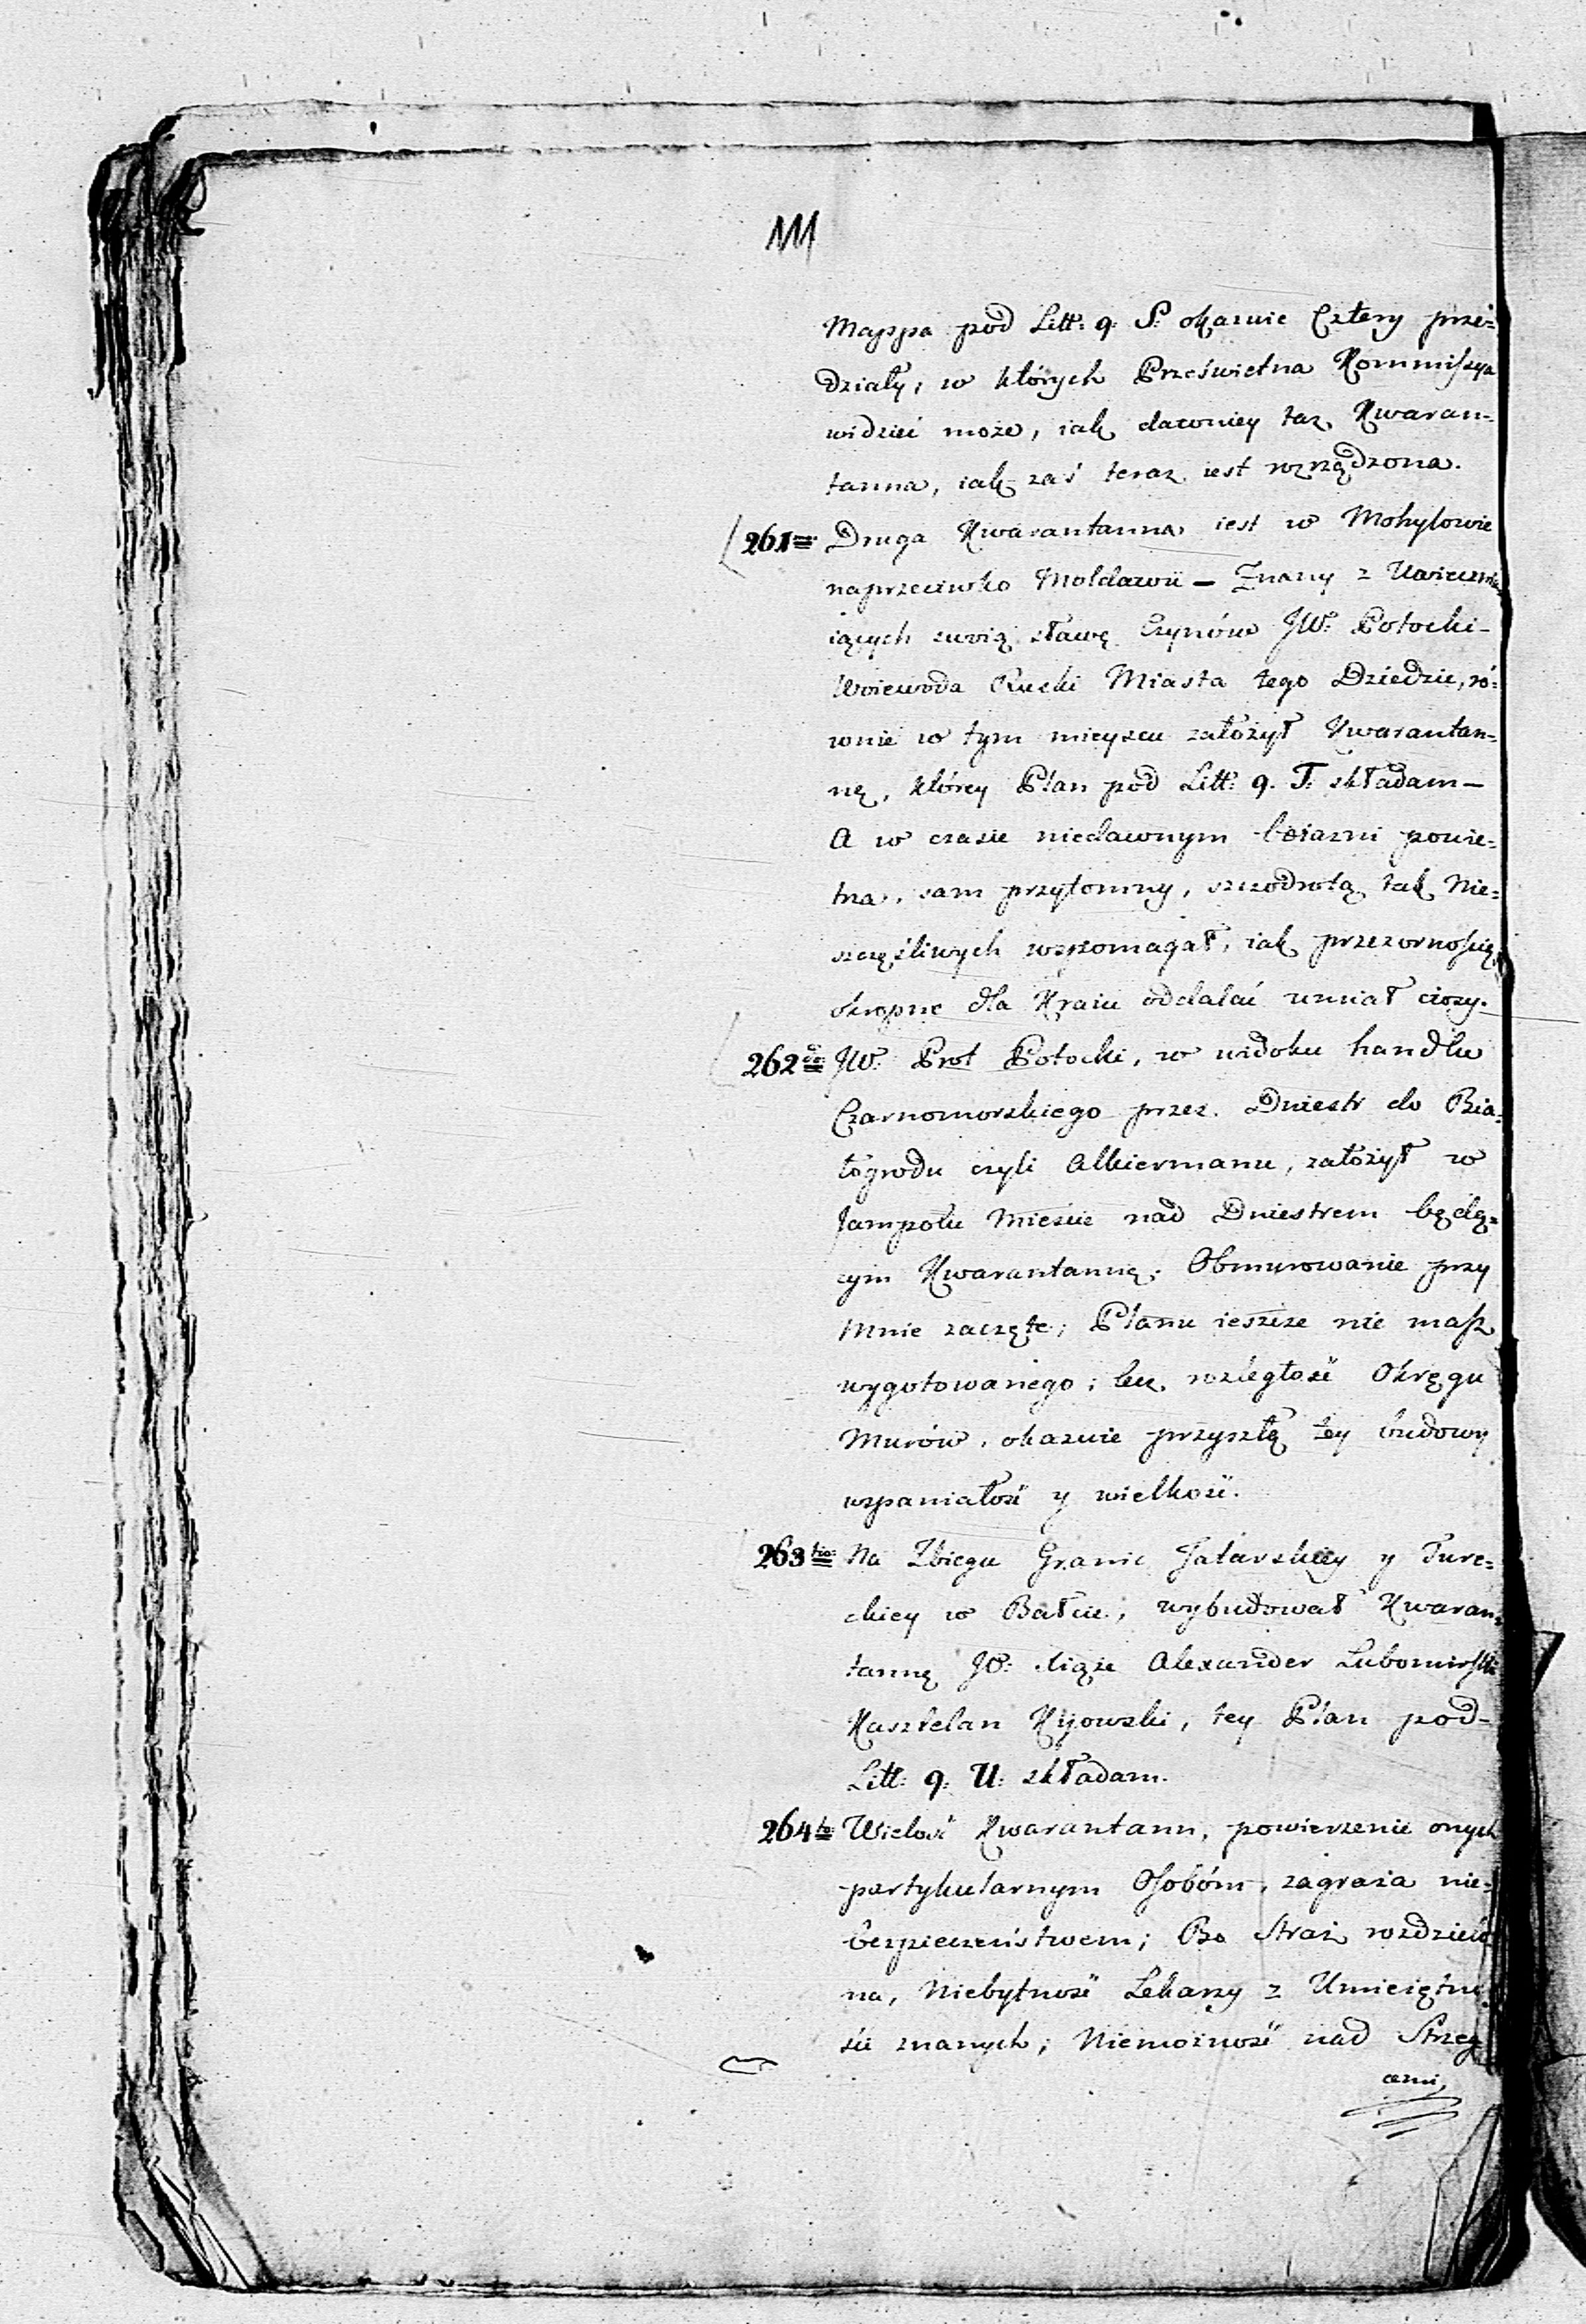 Mappa pod Litt: q. S: okazuie Cztery prze=
działy, w których Prześwietna Kommiszya
widzieć może, iak dawniey taż Kwaran=
tanna, iak zaś teraz iest rozrządzona.
261 Druga Kwarantanna iest w Mohylowie
naprzeciwko Mołdawii — Znany z Uwiecznia
iących swoią sławę Czynów JW: Potocki
Woiewoda Ruski Miasta tego Dziedzic, ró=
wnie w tym mieyscu założył Kwarantan=
nę, którey Plan pod Litt: q. T: składam —
A w czasie niedawnym boiazni powie=
trza, sam przytomny, szczodrotą tak Nie=
szczęśliwych wspomagał, iak przezornością
okropne dla Kraiu oddalać umiał ciosy.
262do JW: Prot Potocki, w widoku handlu
Czarnomorskiego przez Dniestr do Bia=
łogrodu czyli Alkiermanu, założył w
Jampolu Mieście nad Dniestrem będą=
cym Kwarantannę; Obmurowanie przy
Mnie zaczęte; Planu ieszcze nie masz
wygotowanego; lecz rozległość Okręgu
Murów, okazuie przyszłą tey budowy
wspaniałość y wielkość.
263tio Na Zbiegu Granic Tatarskiey y Ture=
ckiey w Bałcie, wybudował Kwaran=
tannę JO: Xiąże Alexander Lubomirski
Kasztelan Kijowski, tey Plan pod
Litt: q: U: składam.
264to Wielość Kwarantann, powierzenie onych
partykularnym Osobóm, zagraża nie=
bezpieczeństwem; Bo Straż rozdzielo
na, Niebytność Lekarzy z Umieiętno
ści znanych; Niemożność nad Strzeg
ąemi